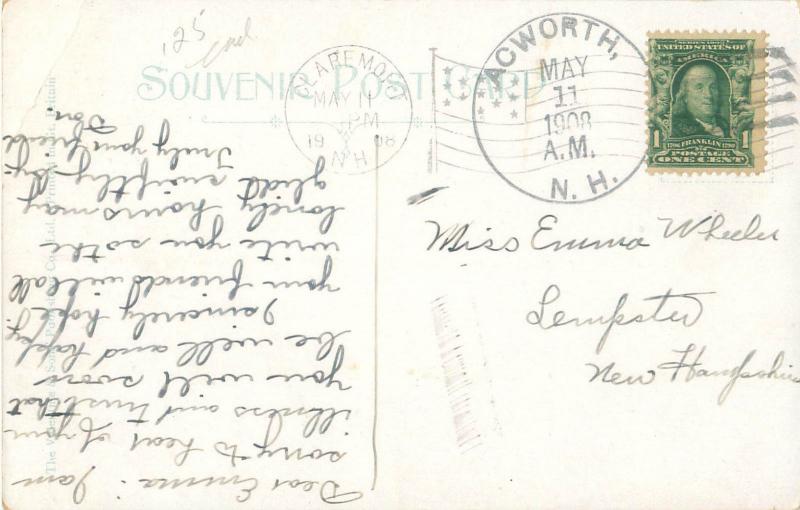 .125
SOUVENIR POST CARD
CLAREMONT
MAY 11
PM
19 08
N H
ACWORTH,
MAY
11
1908
A.M.
N. H.
SERIES 1902
UNITED STATES OF
AMERICA
1 1
1706 FRANKLIN 1790
POSTAGE
ONE CENT
Miss Emma Wheeler
Lempster
New Hampshire
Dear Emma: I am
sorry to hear of your
illness and trust that
you will soon
be well and happy.
I sincerely hope
your friends will all
write you so the
lonely hours may
glide swiftly by.
Truly your friend